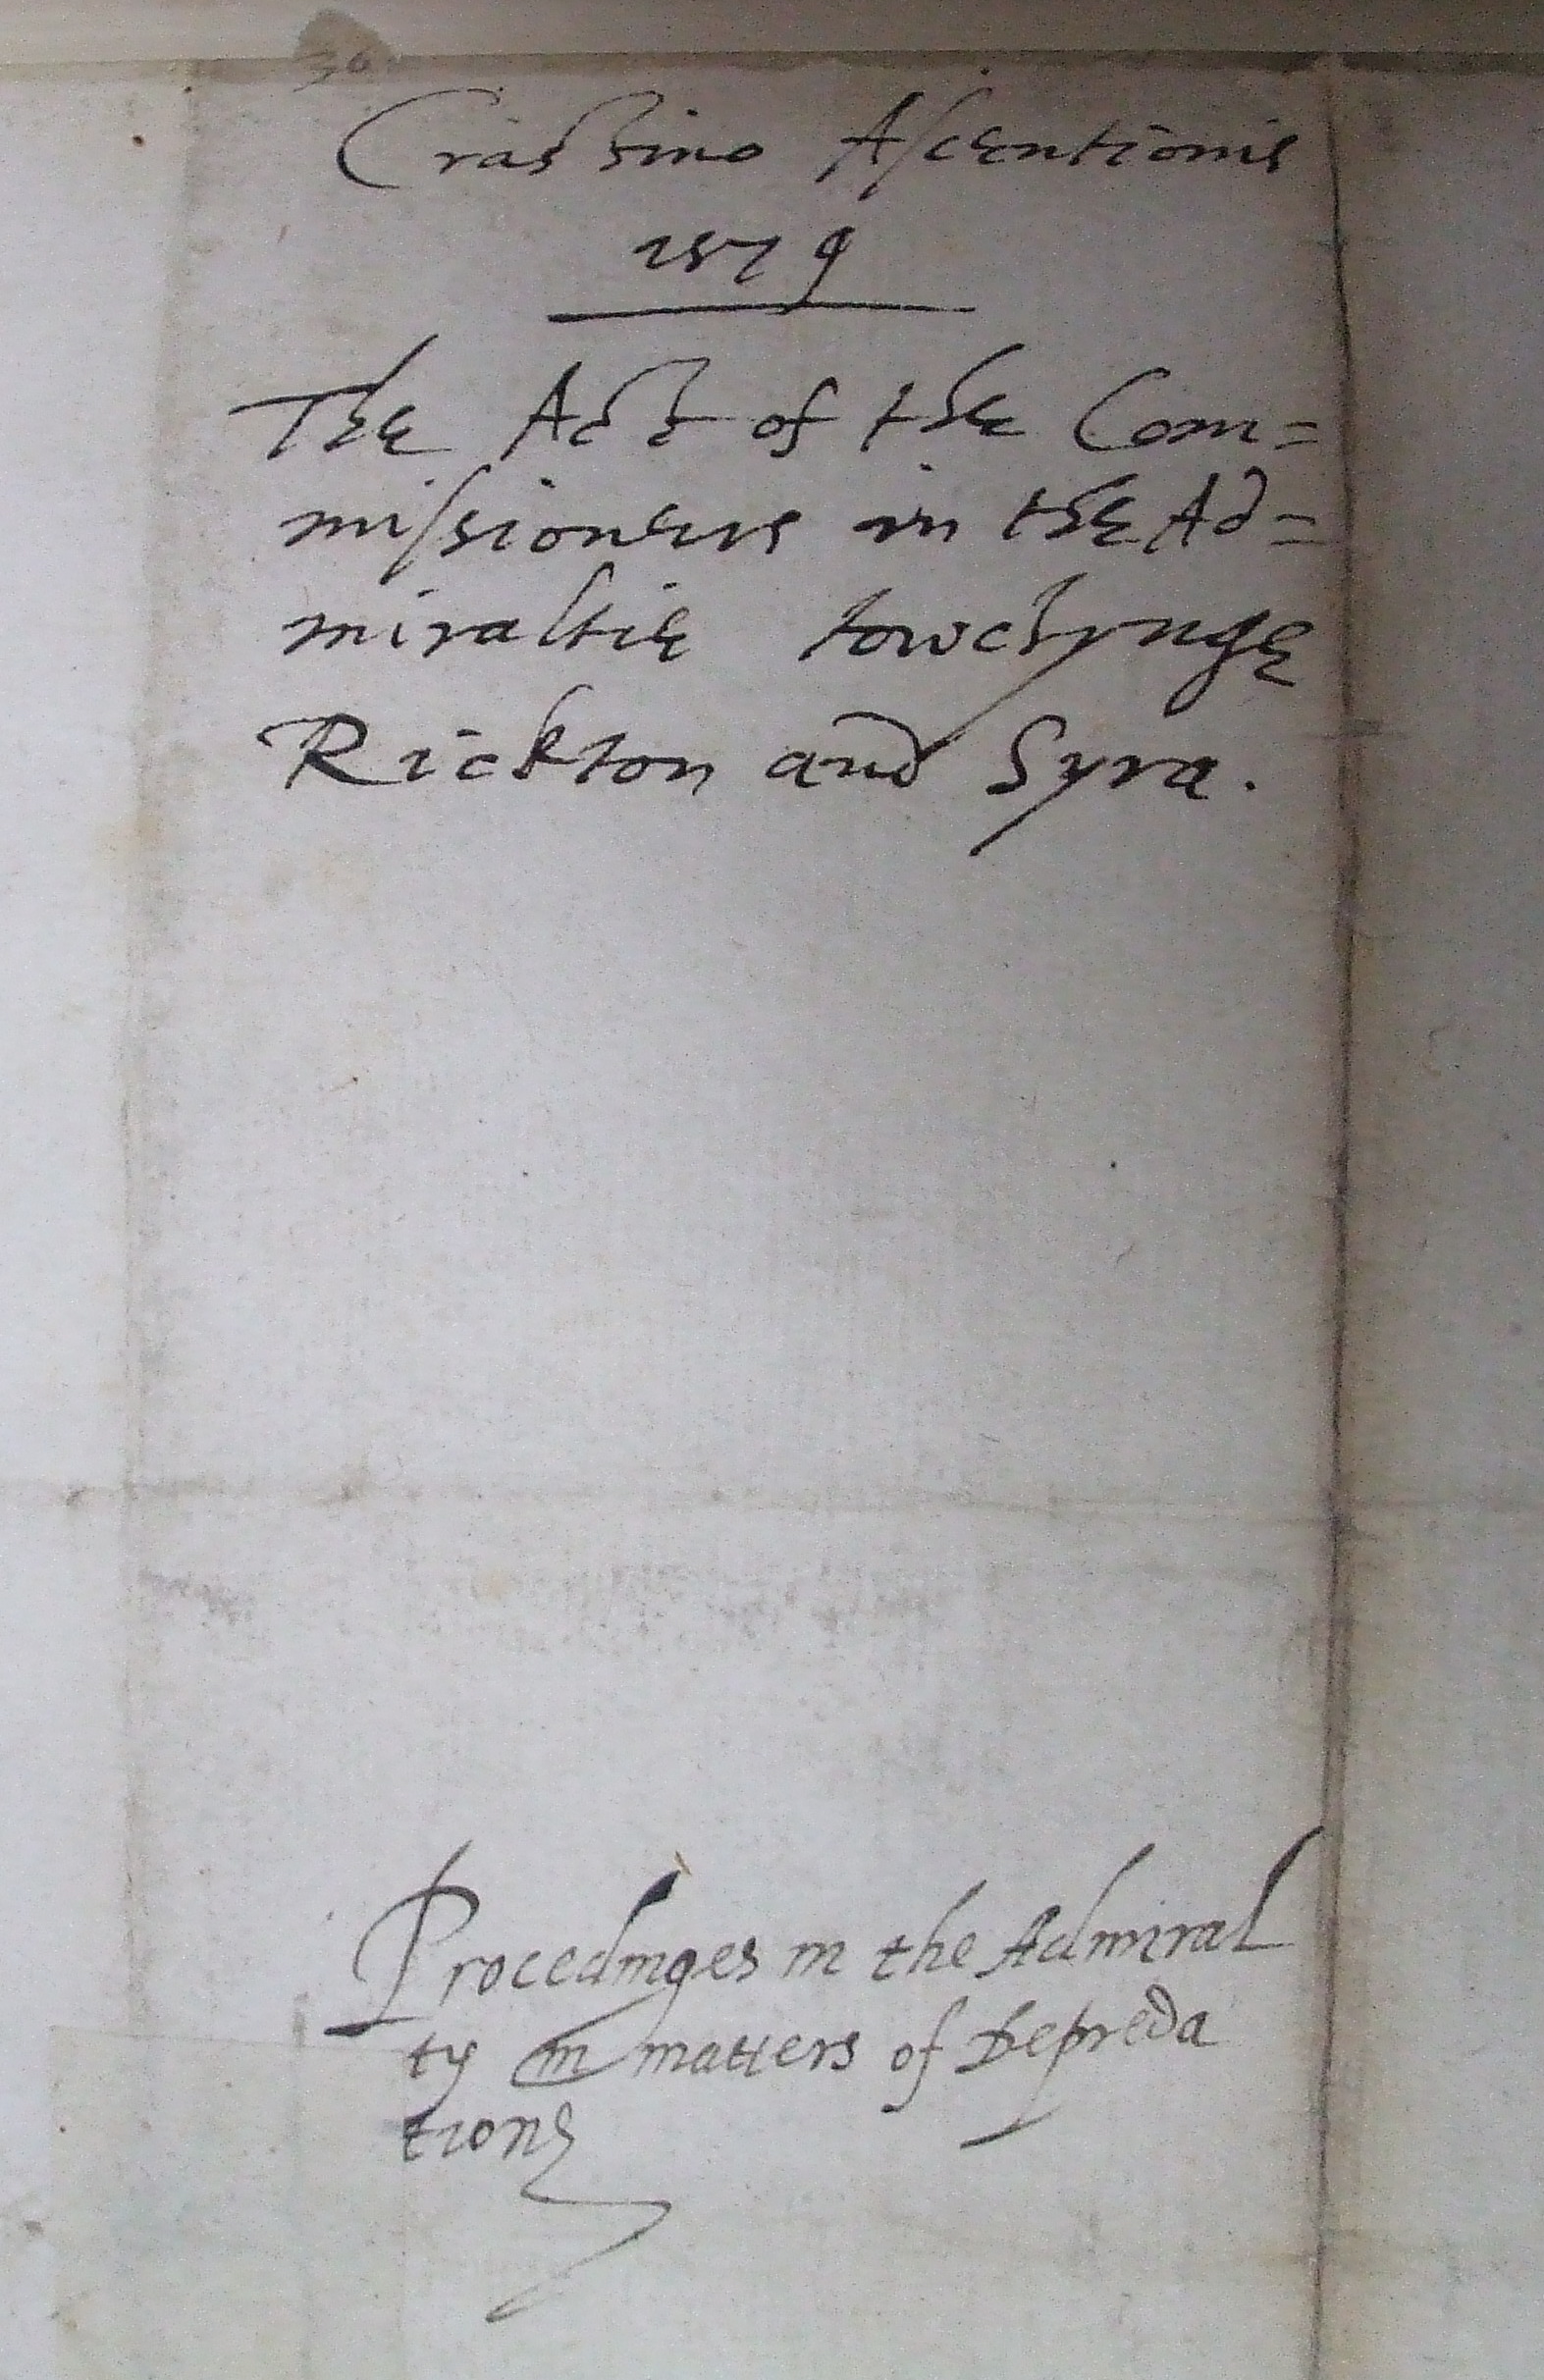 Crastino Ascentionis
1579
The Acte of the Com=
missioners in the Ad=
miraltie towchynge
Rickton and Syra.
Procedinges in the Admiral
ty in matters of Depreda
tions